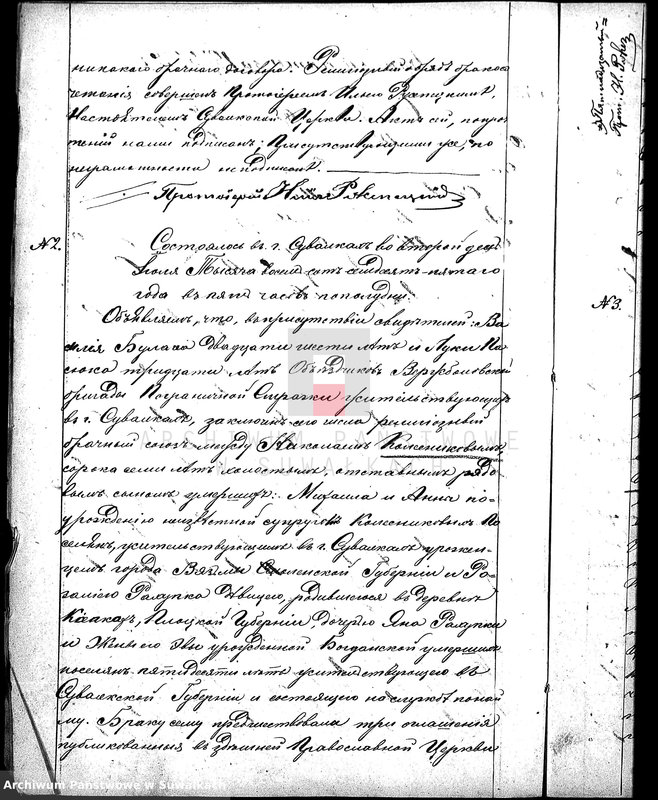 никакого брачнаго договора. Религіозный обрядъ брако=
четанія совершенъ Протоіереемъ
Настоятелемъ Сувалкской Церкви. Актъ сей, по про=
чтеніи нами подписанъ; присутствующими же, по
неграмотности не подписанъ.
Протоіерей
№ 2.
Состоялось въ г. Сувалкахъ во второй день
Іюля Тысяча восемь сотъ семдесятъ пятаго
года въ пять часовъ пополудни.
Объявляемъ, что, въ присутствіи свидѣтелей: Ва=
силія Булаха двадцати шести лѣтъ и Луки
тридцати лѣтъ Объѣздчиковъ Вержболовской
бригады Пограничной Стражи жительствующихъ
въ г. Сувалкахъ, заключенъ сего числа религіозный
брачный союзъ между Кожениковымъ,
сорока семи лѣтъ холостымъ, отставнымъ рядо=
вымъ сыномъ умершихъ: Михаила и Анны по
урожденію неизвѣстной супруговъ Кожениковыхъ По=
селянъ, жительствующимъ въ г. Сувалкахъ урожен=
цемъ города Вязьмы Смоленской Губерніи и Ро=
заліею Ралупка дѣвицею, родившеюся въ деревнѣ
Плоцкой Губерніи, дочерью Яна Ралупки
и Евы урожденной Богданской умершихъ
поселянъ пятидесяти лѣтъ жительствующею въ
Сувалкской Губерніи и состоящею на службѣ
Браку сему предшествовали три оглашенія
публикованныя въ здѣшней Православной Церкви
№ 3.
ARCHIWUM PAŃSTWOWE
W SUWAŁKACH
Archiwum Państwowe w Suwałkach